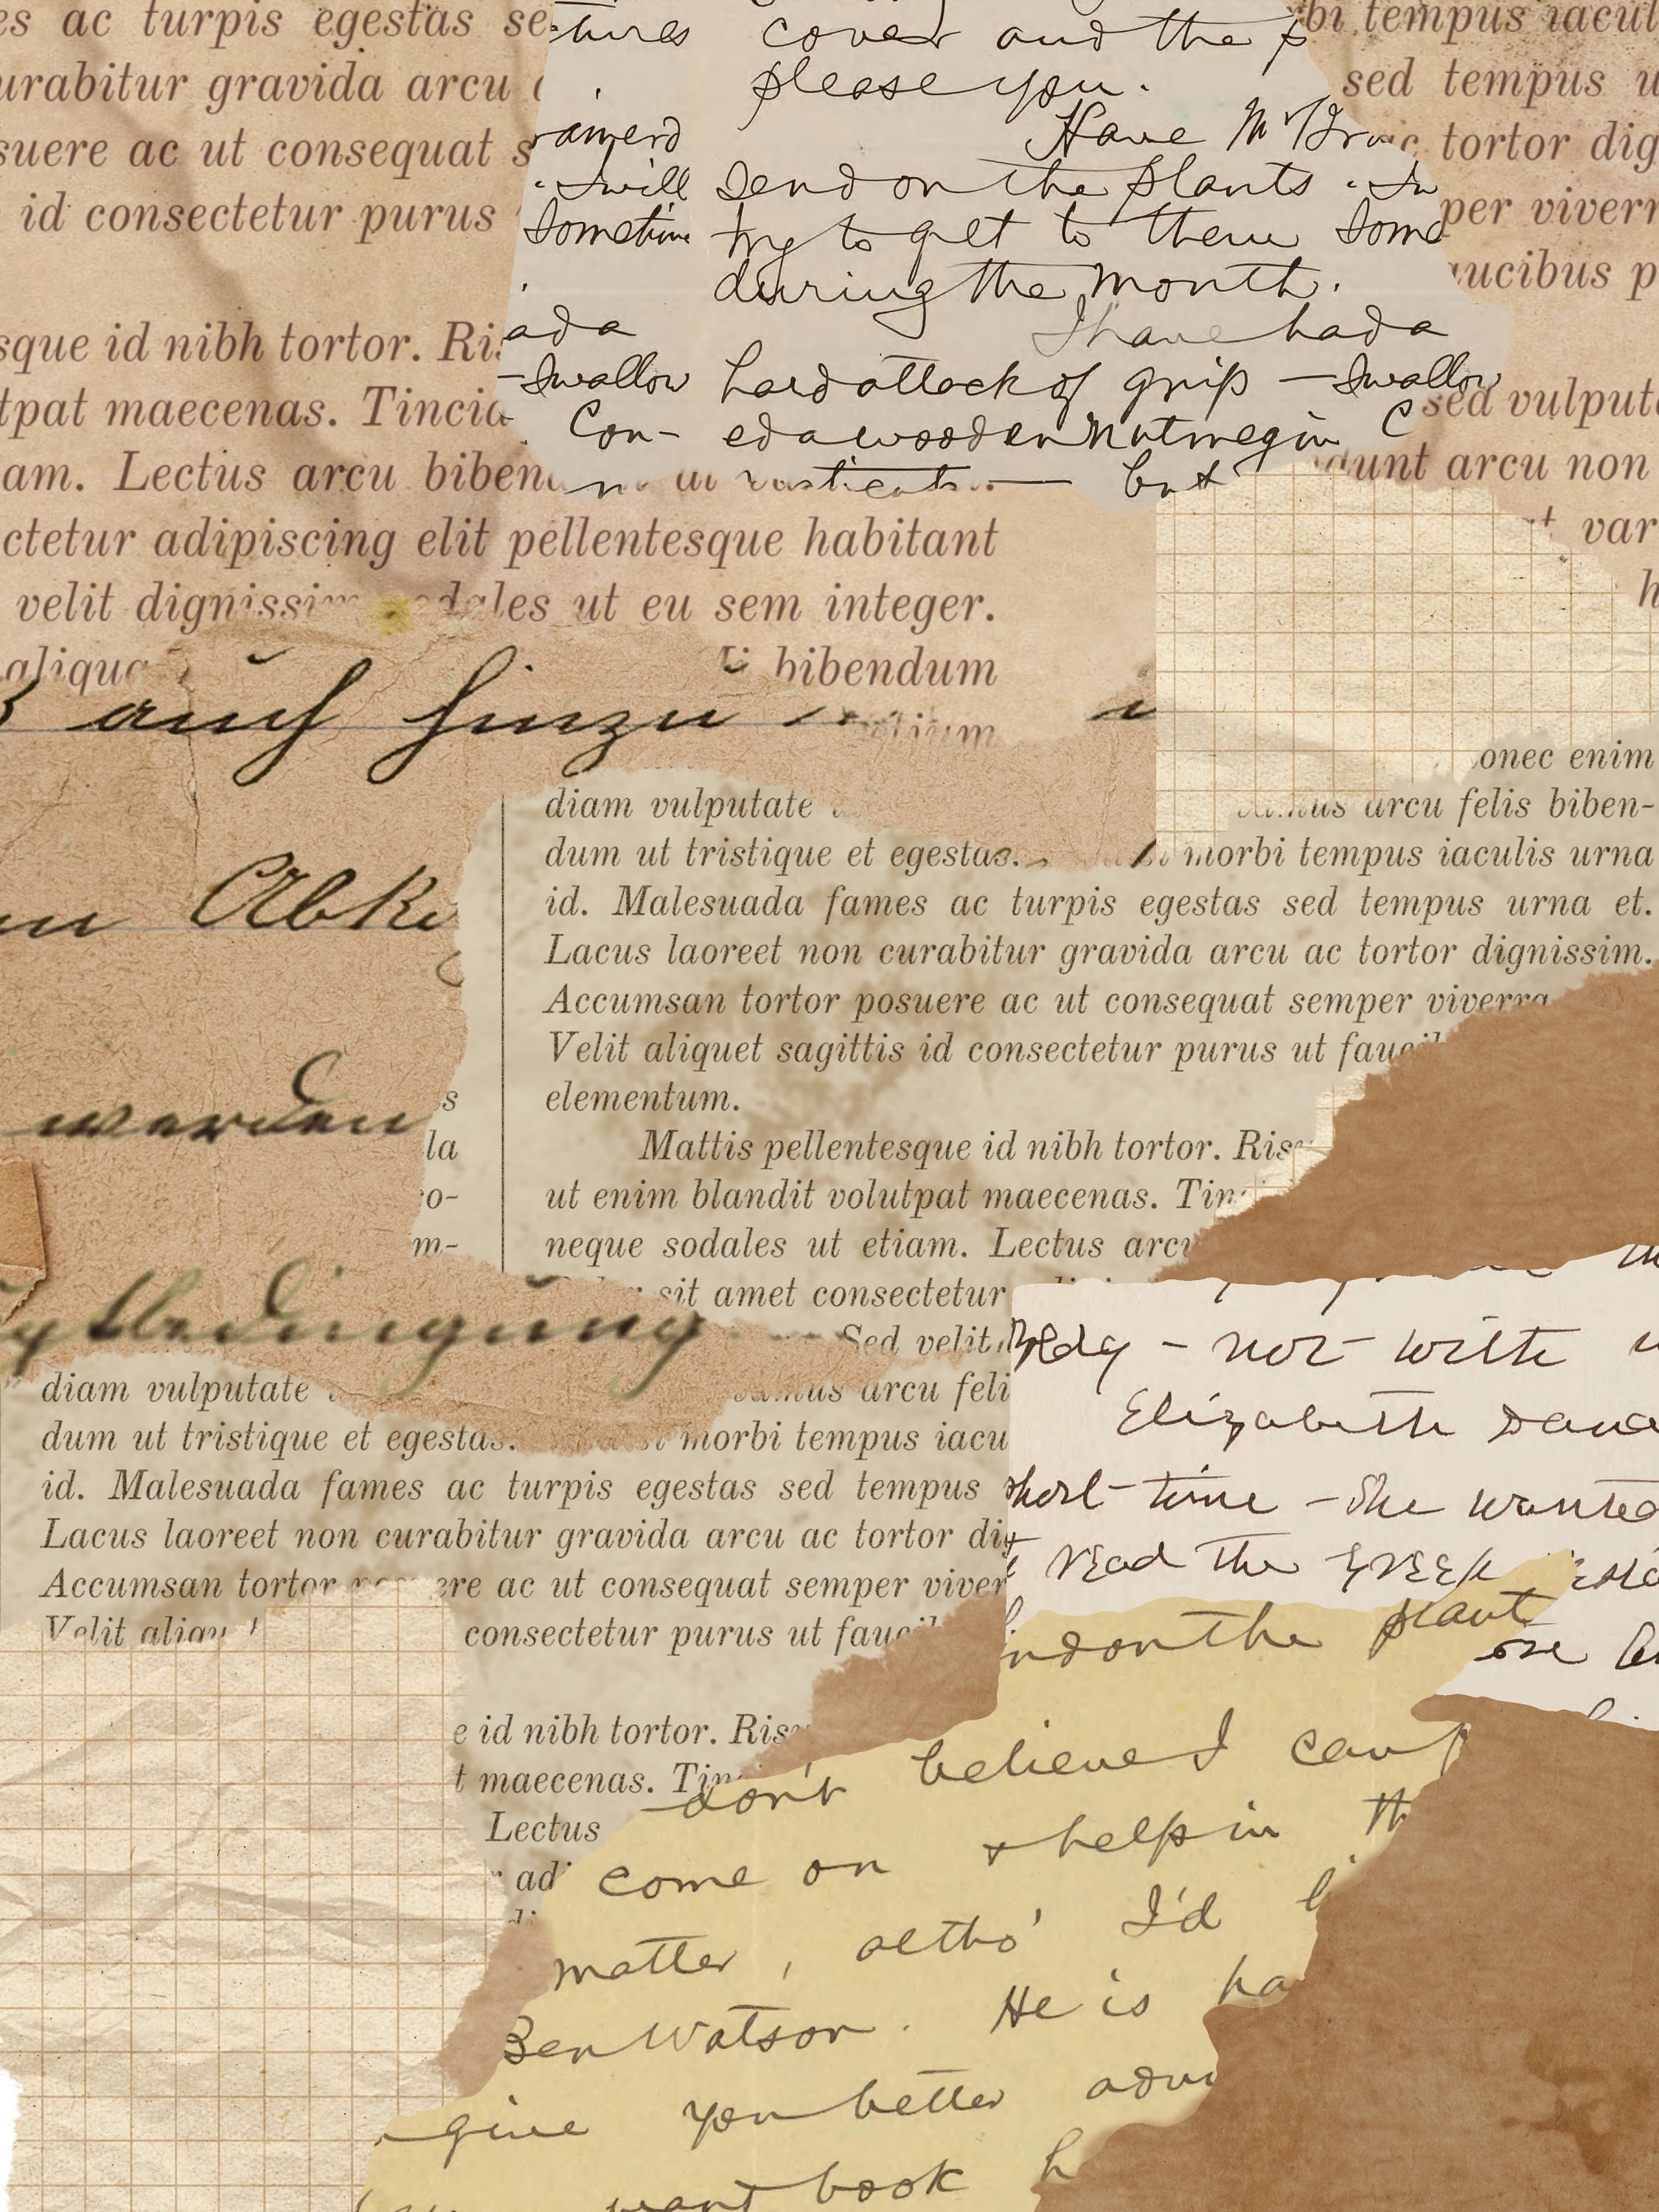 es ac turpis egestas se
urabitur gravida arcu
suere ac ut consequat s
id consectetur purus
sque id nibh tortor. Ris
tpat maecenas. Tincid
am. Lectus arcu biben
ctetur adipiscing elit pellentesque habitant
velit dignissim sodales ut eu sem integer.
aliqua
bibendum
tium
tures cover and the p
please you.
Have Mr Br
I will send on the plants. I w
Sometime try to get to them Some
during the month.
ad a I have had a
—Swallow hard attack of grip —Swallow
Con- ed a wooden nutmeg in C
but
bi tempus iacul
sed tempus u
ac tortor dig
per viverr
aucibus p
sed vulput
dunt arcu non
var
h
auch hinzu
werden
diam vulputate
onec enim
mus arcu felis biben-
dum ut tristique et egestas.
morbi tempus iaculis urna
id. Malesuada fames ac turpis egestas sed tempus urna et.
Lacus laoreet non curabitur gravida arcu ac tortor dignissim.
Accumsan tortor posuere ac ut consequat semper viverra
Velit aliquet sagittis id consectetur purus ut faucib
elementum.
Mattis pellentesque id nibh tortor. Risu
ut enim blandit volutpat maecenas. Tin
neque sodales ut etiam. Lectus arcu
sit amet consectetur
Sed velit
s
la
co-
m-
diam vulputate
mus arcu feli
dum ut tristique et egestas.
morbi tempus iacu
id. Malesuada fames ac turpis egestas sed tempus
Lacus laoreet non curabitur gravida arcu ac tortor dig
Accumsan tortor posuere ac ut consequat semper viver
Velit aliqu
consectetur purus ut faucib
e id nibh tortor. Risu
t maecenas. Tin
Lectus
adi
Bldg – not with
Elizabeth Dana
short time – She wanted
read the Greek
one
nd on the plant
don't believe I can
come on + help in th
matter, altho' I'd li
Ben Watson. He is ha
give you better advi
want book h